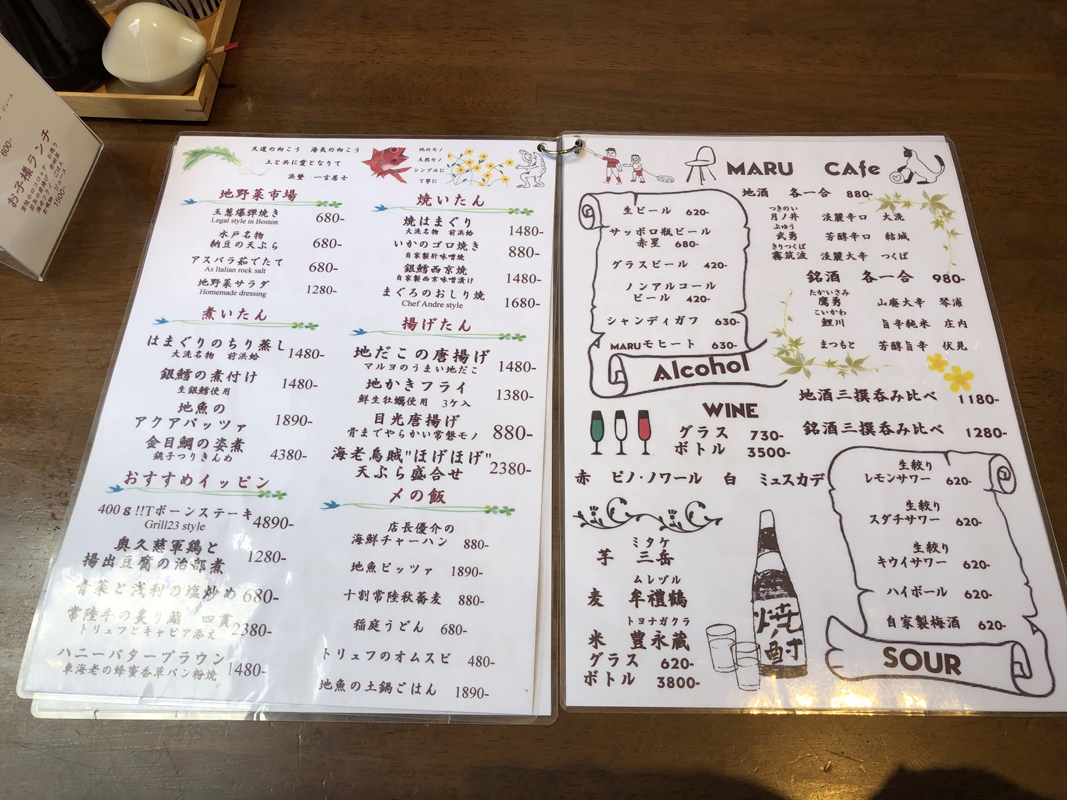 ジュース
600-
お子様ランチ
1580-
天道の向こう 湯気の向こう
土と共に愛となりて
一言居士
地のモノ
天然モノ
シンプルに
丁寧に
地野菜市場
玉葱爆弾焼き 680-
Legal style in Boston
水戸名物
納豆の天ぷら 680-
アスパラ茹でたて 680-
As Italian rock salt
地野菜サラダ 1280-
Homemade dressing
煮いたん
はまぐりのちり蒸し 1480-
大洗名物 前浜蛤
銀鱈の煮付け 1480-
生銀鱈使用
地魚の
アクアパッツァ 1890-
金目鯛の姿煮 4380-
銚子つりきんめ
おすすめイッピン
400g!!Tボーンステーキ 4890-
Grill23 style
奥久慈軍鶏と
揚出豆腐の治部煮 1280-
青菜と浅利の塩炒め 680-
常陸牛の炙り鮨 四貫 2380-
トリュフとキャビア添え
ハニーバターブラウン 1480-
車海老の蜂蜜香草パン粉焼
焼いたん
焼はまぐり 1480-
大洗名物 前浜蛤
いかのゴロ焼き 880-
自家製肝味噌焼
銀鱈西京焼 1480-
自家製西京味噌漬け
まぐろのおしり焼 1680-
Chef Andre style
揚げたん
地だこの唐揚げ 1480-
マルヨのうまい地だこ
地かきフライ 1380-
鮮生牡蠣使用 3ケ入
目光唐揚げ 880-
骨までやらかい常磐モノ
海老烏賊"ほげほげ"
天ぷら盛合せ 2380-
〆の飯
店長優介の
海鮮チャーハン 880-
地魚ピッツァ 1890-
十割常陸秋蕎麦 880-
稲庭うどん 680-
トリュフのオムスビ 480-
地魚の土鍋ごはん 1890-
MARU CAfe
生ビール 620-
サッポロ瓶ビール
赤星 680-
グラスビール 420-
ノンアルコール
ビール 420-
シャンディガフ 630-
MARUモヒート 630-
Alcohol
地酒 各一合 880-
つきのい
月ノ井 淡麗辛口 大洗
ぶゆう
武勇 芳醇辛口 結城
きりつくば
霧筑波 淡麗大辛 つくば
銘酒 各一合 980-
たかいさみ
鷹勇 山廃大辛 琴浦
こいかわ
鯉川 旨辛純米 庄内
まつもと 芳醇旨辛 伏見
地酒三撰呑み比べ 1180-
銘酒三撰呑み比べ 1280-
WINE
グラス 730-
ボトル 3500-
赤 ピノ・ノワール 白 ミュスカデ
ミタケ
芋 三岳
ムレヅル
麦 牟禮鶴
トヨナガクラ
米 豊永蔵
グラス 620-
ボトル 3800-
焼酎
生絞り
レモンサワー 620-
生絞り
スダチサワー 620-
生絞り
キウイサワー 620-
ハイボール 620-
自家製梅酒 620-
SOUR